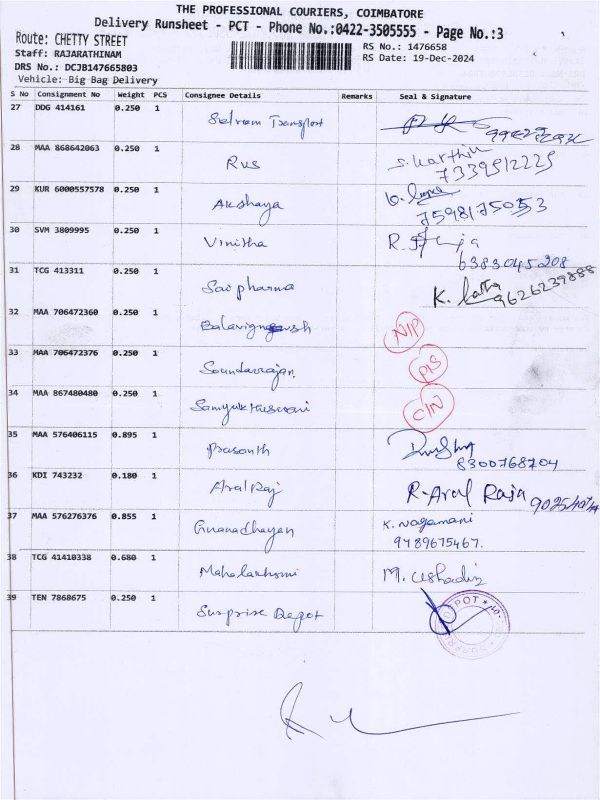 THE PROFESSIONAL COURIERS, COIMBATORE
Delivery Runsheet - PCT - Phone No.:0422-3505555 - Page No.:3
Route: CHETTY STREET
RS No.: 1476658
Staff: RAJARATHINAM
RS Date: 19-Dec-2024
DRS No.: DCJB147665803
Vehicle: Big Bag Delivery
S No Consignment No Weight PCS Consignee Details Remarks Seal & Signature
27 DDG 414161 0.250 1
Selvam Transport
28 MAA 868642063 0.250 1
Rvs S. Karthik
7339512225
29 KUR 6000557578 0.250 1
Akshaya
7598175053
30 SVM 3809995 0.250 1
Vinitha
6383045208
31 TCG 413311 0.250 1
Sai pharma K. Latha
9626239888
32 MAA 706472360 0.250 1
NIP
33 MAA 706472376 0.250 1
Soundarrajan P/S
34 MAA 867480480 0.250 1
C/N
35 MAA 576406115 0.895 1
Prasanth
8300768704
36 KDI 743232 0.180 1
Arul Raj R-Arul Raja
37 MAA 576276376 0.855 1
Gnana dhayan K. Nagamani
9489675467.
38 TCG 41410338 0.680 1
Mahalakshmi M. Ushadevi
39 TEN 7868675 0.250 1
Surprise Depot